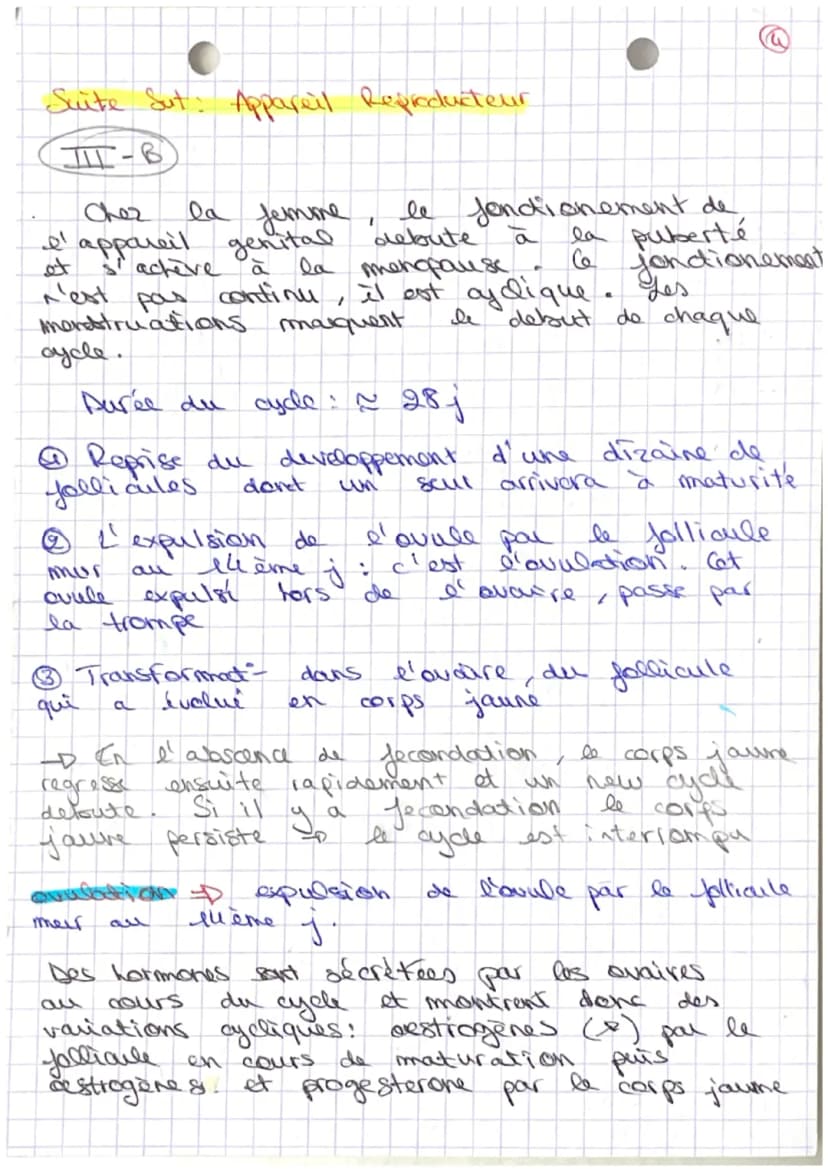 4
Suite Svt : Appareil Reproducteur
III - B
Chez la femme, le fonctionement de
l'appareil genital debute à la puberté
et s'achève à la menopause. Ce fonctionement
n'est pas continu, il est cyclique. Les
menstruations marquent le debut de chaque
cycle.
Durée du cycle : ≈ 28 j
① Reprise du developpement d'une dizaine de
follicules dont un seul arrivera à maturité
② L'expulsion de l'ovule par le follicule
mur au 14ème j : c'est l'ovulation. Cet
ovule expulsé hors de l'ovaire, passe par
la trompe
③ Transformat° dans l'ovaire, du follicule
qui a évolué en corps jaune
→ En l'absence de fecondation, le corps jaune
regresse ensuite rapidement et un new cycle
debute. Si il y a fecondation le corps
jaune persiste → le cycle est interrompu
ovulation ⇒ expulsion de l'ovule par le follicule
mur au 14ème j.
Des hormones sont sécrétées par les ovaires
au cours du cycle et montrent donc des
variations cycliques : oestrogènes (*) par le
follicule en cours de maturation puis
oestrogènes et progesterone par le corps jaune